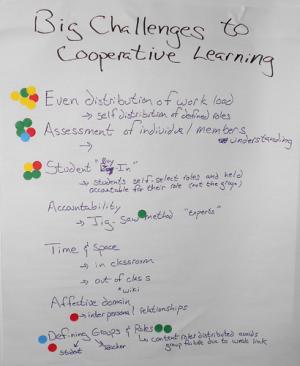 Big Challenges to
Cooperative Learning
Even distribution of work load
→ self distribution of defined roles
Assessment of individual members
→ understanding
Student "Buy-In"
→ students self-select roles and held
accountable for their role (not the group)
Accountability
→ Jig-Saw method "experts"
Time & Space
→ in classroom
→ out of class
*wiki
Affective domain
→ interpersonal relationships
Defining Groups & Roles
student teacher
→ content roles distributed avoids
group failure due to weak link